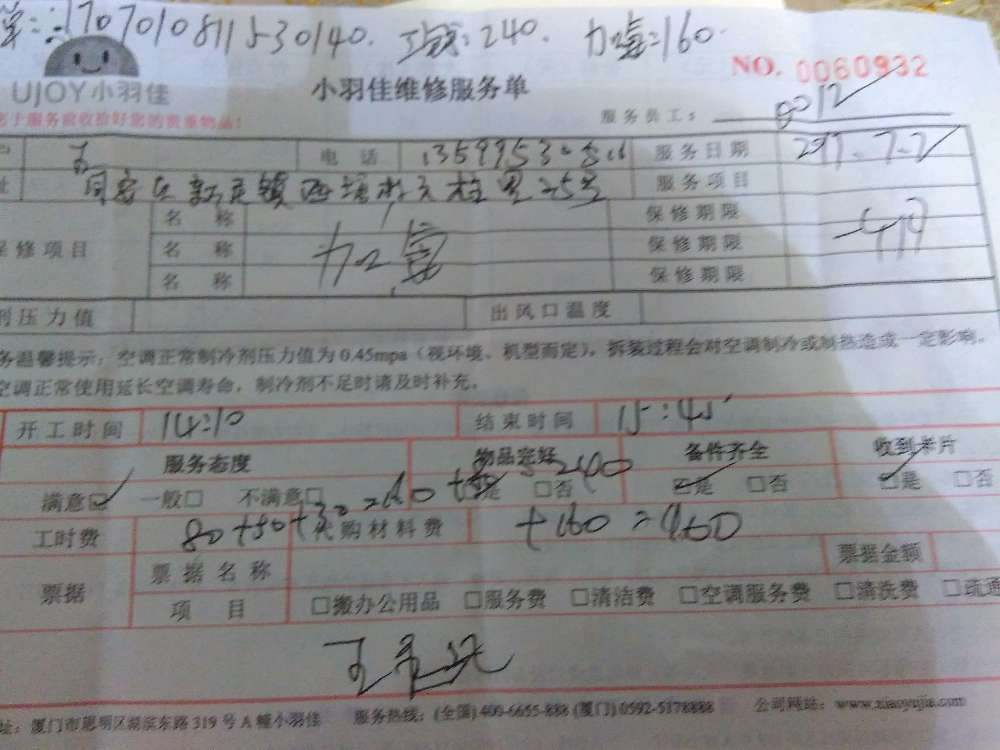 单:1707010811530140. 工钱:240. 加氟=160.
NO. 0060932
UJOY小羽佳
小羽佳维修服务单
服务员工: 8012
于服务前收拾好您的贵重物品!
电话 服务日期 2017-7-2
同安区新民镇西塘村 里25号 服务项目
名称 保修期限
保修项目 名称 加氟 保修期限
名称 保修期限
剂压力值 出风口温度
务温馨提示:空调正常制冷剂压力值为0.45mpa(视环境、机型而定),拆装过程会对空调制冷或制热造成一定影响。
空调正常使用延长空调寿命,制冷剂不足时请及时补充。
开工时间 14:10 结束时间 15:45
服务态度 物品完好 备件齐全 收到卡片
满意☑ 一般□ 不满意□ 是 □否 ☑是 □否 ☑是 □否
工时费 80+50+30=160 代购材料费 +160=460
票据 票据名称 票据金额
项目 □搬办公用品 □服务费 □清洁费 □空调服务费 □清洗费 □疏通
址:厦门市思明区湖滨东路319号A幢小羽佳 服务热线:(全国)400-6655-888 (厦门)0592-5178888 公司网站:www.xiaoyujia.com